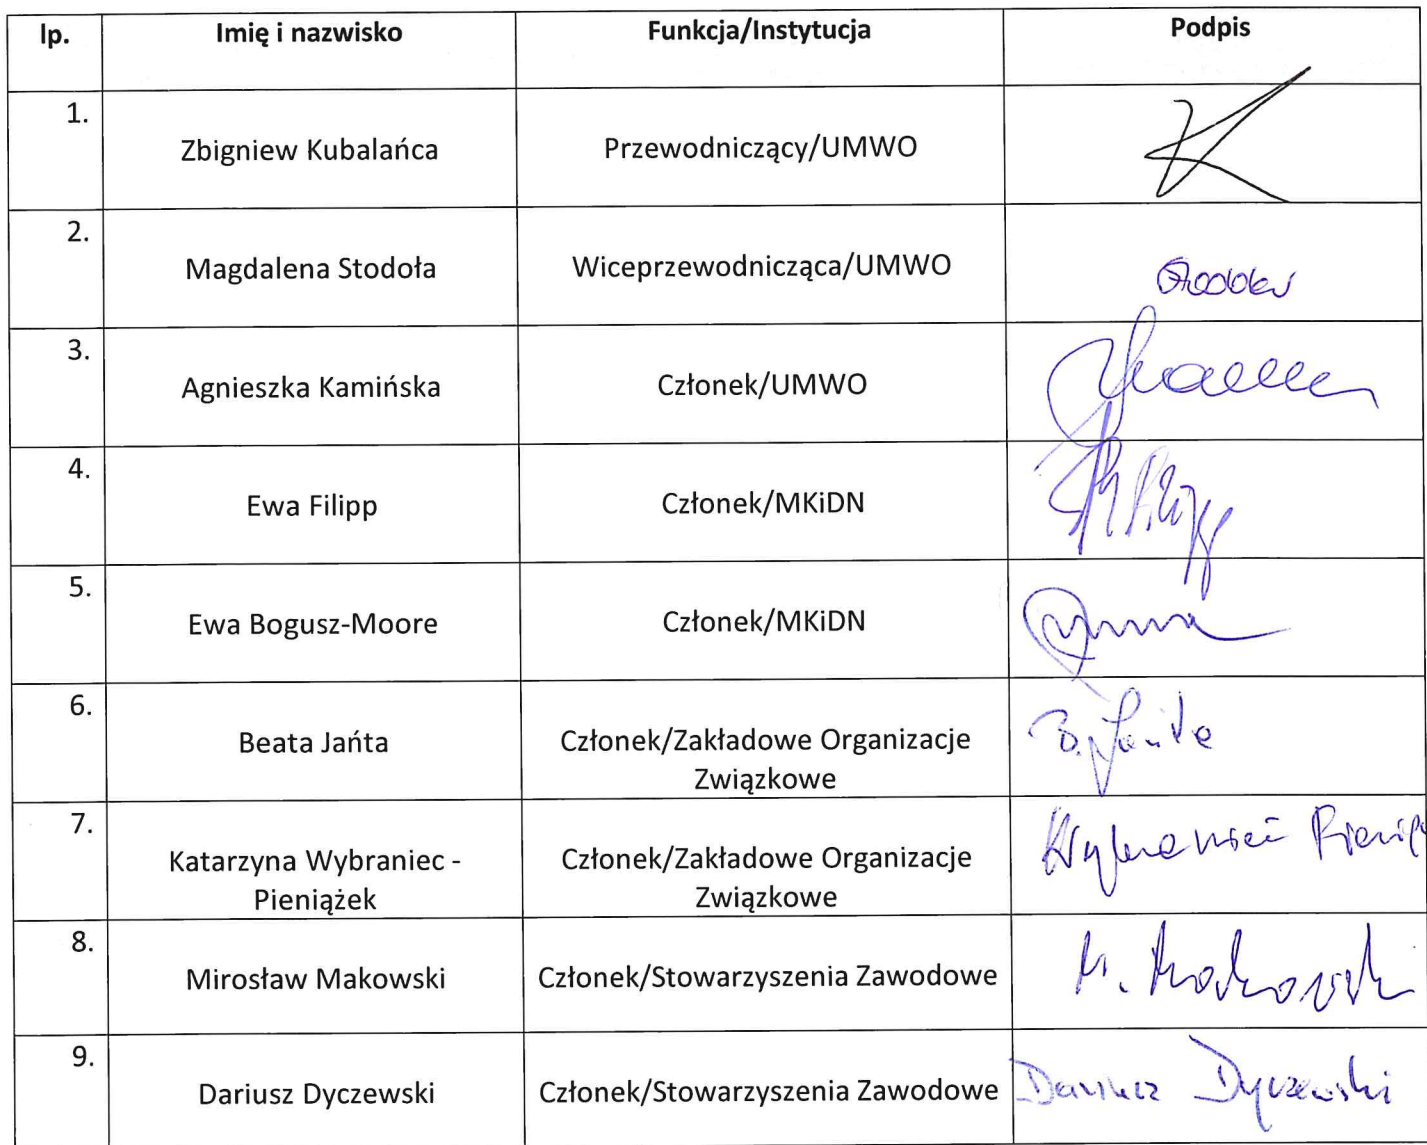 lp. Imię i nazwisko Funkcja/Instytucja Podpis
1. Zbigniew Kubalańca Przewodniczący/UMWO
2. Magdalena Stodoła Wiceprzewodnicząca/UMWO
3. Agnieszka Kamińska Członek/UMWO
4. Ewa Filipp Członek/MKiDN
5. Ewa Bogusz-Moore Członek/MKiDN
6. Beata Jańta Członek/Zakładowe Organizacje
Związkowe B. Jańta
7. Katarzyna Wybraniec - Członek/Zakładowe Organizacje
Pieniążek Związkowe Wybraniec
8. Mirosław Makowski Członek/Stowarzyszenia Zawodowe M. Makowski
9. Dariusz Dyczewski Członek/Stowarzyszenia Zawodowe Dariusz Dyczewski